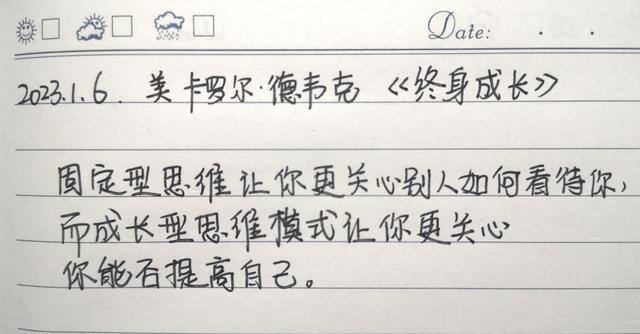 Date: . .
2023.1.6. 美 卡罗尔·德韦克 《终身成长》
固定型思维让你更关心别人如何看待你，
而成长型思维模式让你更关心
你能否提高自己。